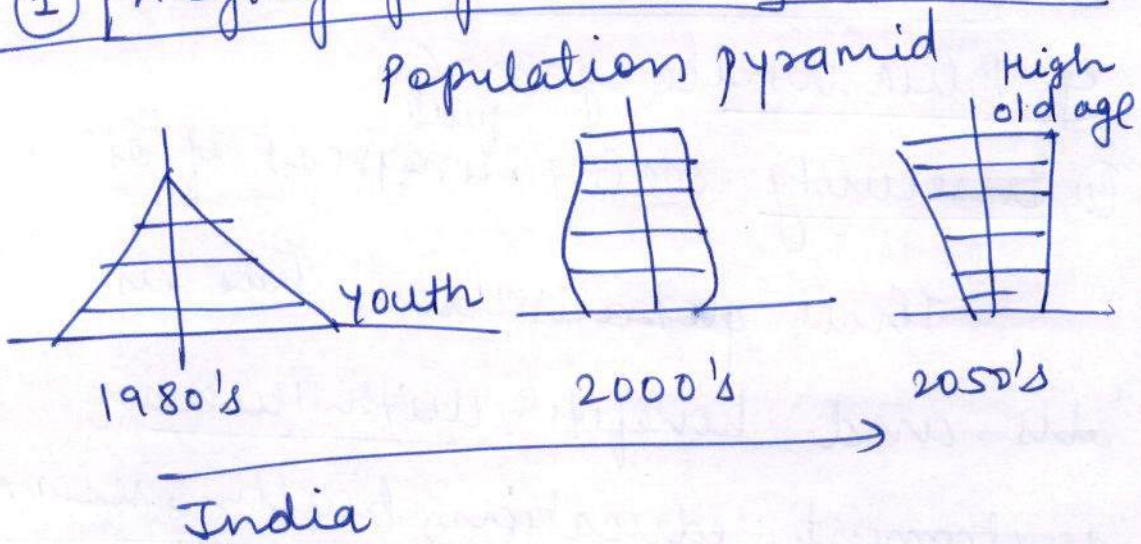 1
Population pyramid
High
old age
Youth
1980's
2000's
2050's
India